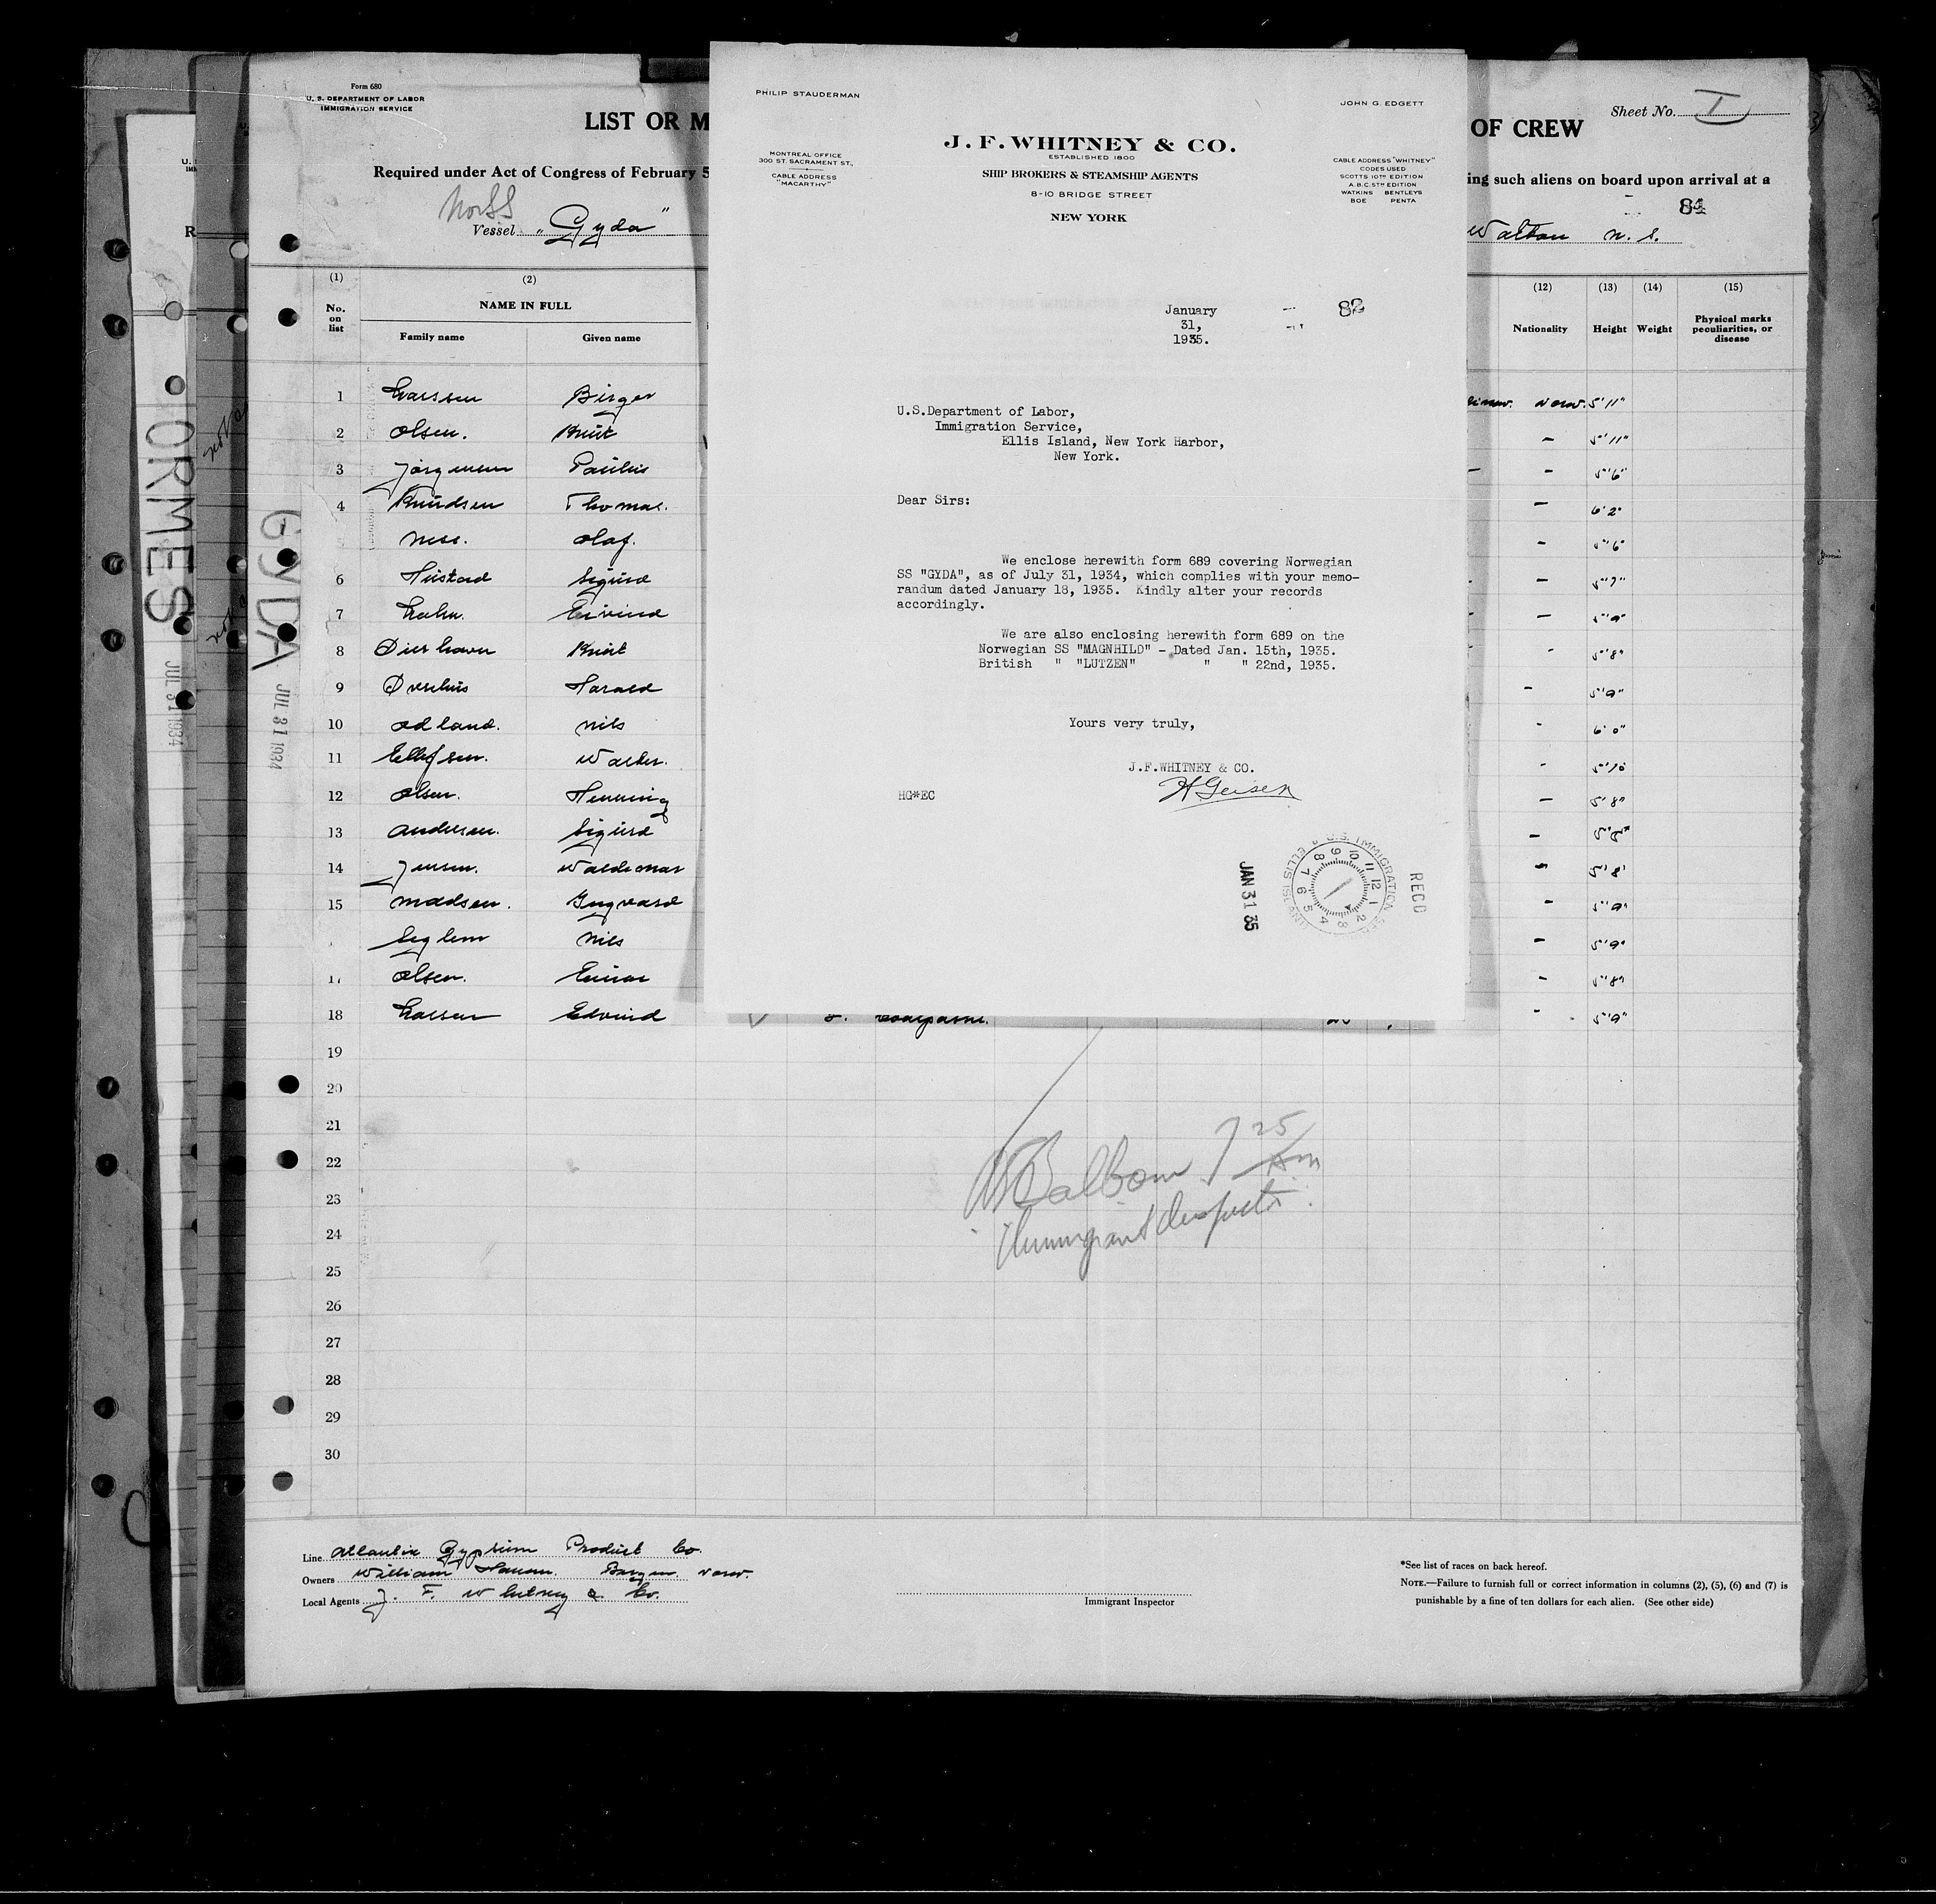 Form 680
U. S. DEPARTMENT OF LABOR
IMMIGRATION SERVICE
LIST OR M
OF CREW
Sheet No. I
Required under Act of Congress of February 5
ing such aliens on board upon arrival at a
84
Nor SS
Vessel "Gyda"
Walton N. S.
(1) (2)
No. on list
NAME IN FULL
Family name Given name
(12) (13) (14) (15)
Nationality Height Weight Physical marks peculiarities, or disease
1 Larssen Birger Norw. 5'11"
2 Olsen. Knut — 5'11"
3 Jörgensen Paulus — 5'6"
4 Knudsen Thomas. — 6'2"
Ness. Olaf. — 5'6"
6 Hustad Sigurd — 5'7"
7 Eivind — 5'9"
8 Knut - 5'8"
9 Harald - 5'9"
10 Odland. Nils - 6'0"
11 Ellefsen. - 5'10
12 Olsen. Henning — 5'8"
13 Andersen. Sigurd —
14 Jensen. Waldemar - 5'8'
15 Madsen. Yngvard - 5'9"
Seglem Nils — 5'9"
17 Olsen. Einar — 5'8"
18 Larsen Edvind - 5'9"
19
20
21
22
23
24
25
26
27
28
29
30
PHILIP STAUDERMAN
JOHN G. EDGETT
J. F. WHITNEY & CO.
ESTABLISHED 1800
SHIP BROKERS & STEAMSHIP AGENTS
8-10 BRIDGE STREET
NEW YORK
MONTREAL OFFICE
300 ST. SACRAMENT ST.,
CABLE ADDRESS
"MACARTHY"
CABLE ADDRESS "WHITNEY"
CODES USED
SCOTTS 10TH EDITION
A.B.C. 5TH EDITION
WATKINS BENTLEYS
BOE PENTA
January
31,
1935.
82
U.S.Department of Labor,
Immigration Service,
Ellis Island, New York Harbor,
New York.
Dear Sirs:
We enclose herewith form 689 covering Norwegian
SS "GYDA", as of July 31, 1934, which complies with your memo-
randum dated January 18, 1935. Kindly alter your records
accordingly.
We are also enclosing herewith form 689 on the
Norwegian SS "MAGNHILD" - Dated Jan. 15th, 1935.
British " "LUTZEN" " " 22nd, 1935.
Yours very truly,
J.F.WHITNEY & CO.
H Geisen
HG*EC
JAN 31 35
RECD
U.S. IMMIGRATION
ELLIS ISLAND
Balbom 7 25 Am
Immigrant Inspector.
Line Atlantic Gypsum Product Co.
Owners William Hansen. Bergen. Norw.
Local Agents J. F. Whitney & Co.
Immigrant Inspector
*See list of races on back hereof.
NOTE.—Failure to furnish full or correct information in columns (2), (5), (6) and (7) is
punishable by a fine of ten dollars for each alien. (See other side)
GYDA
JUL 31 1934
ORMES
JUL 31 1934